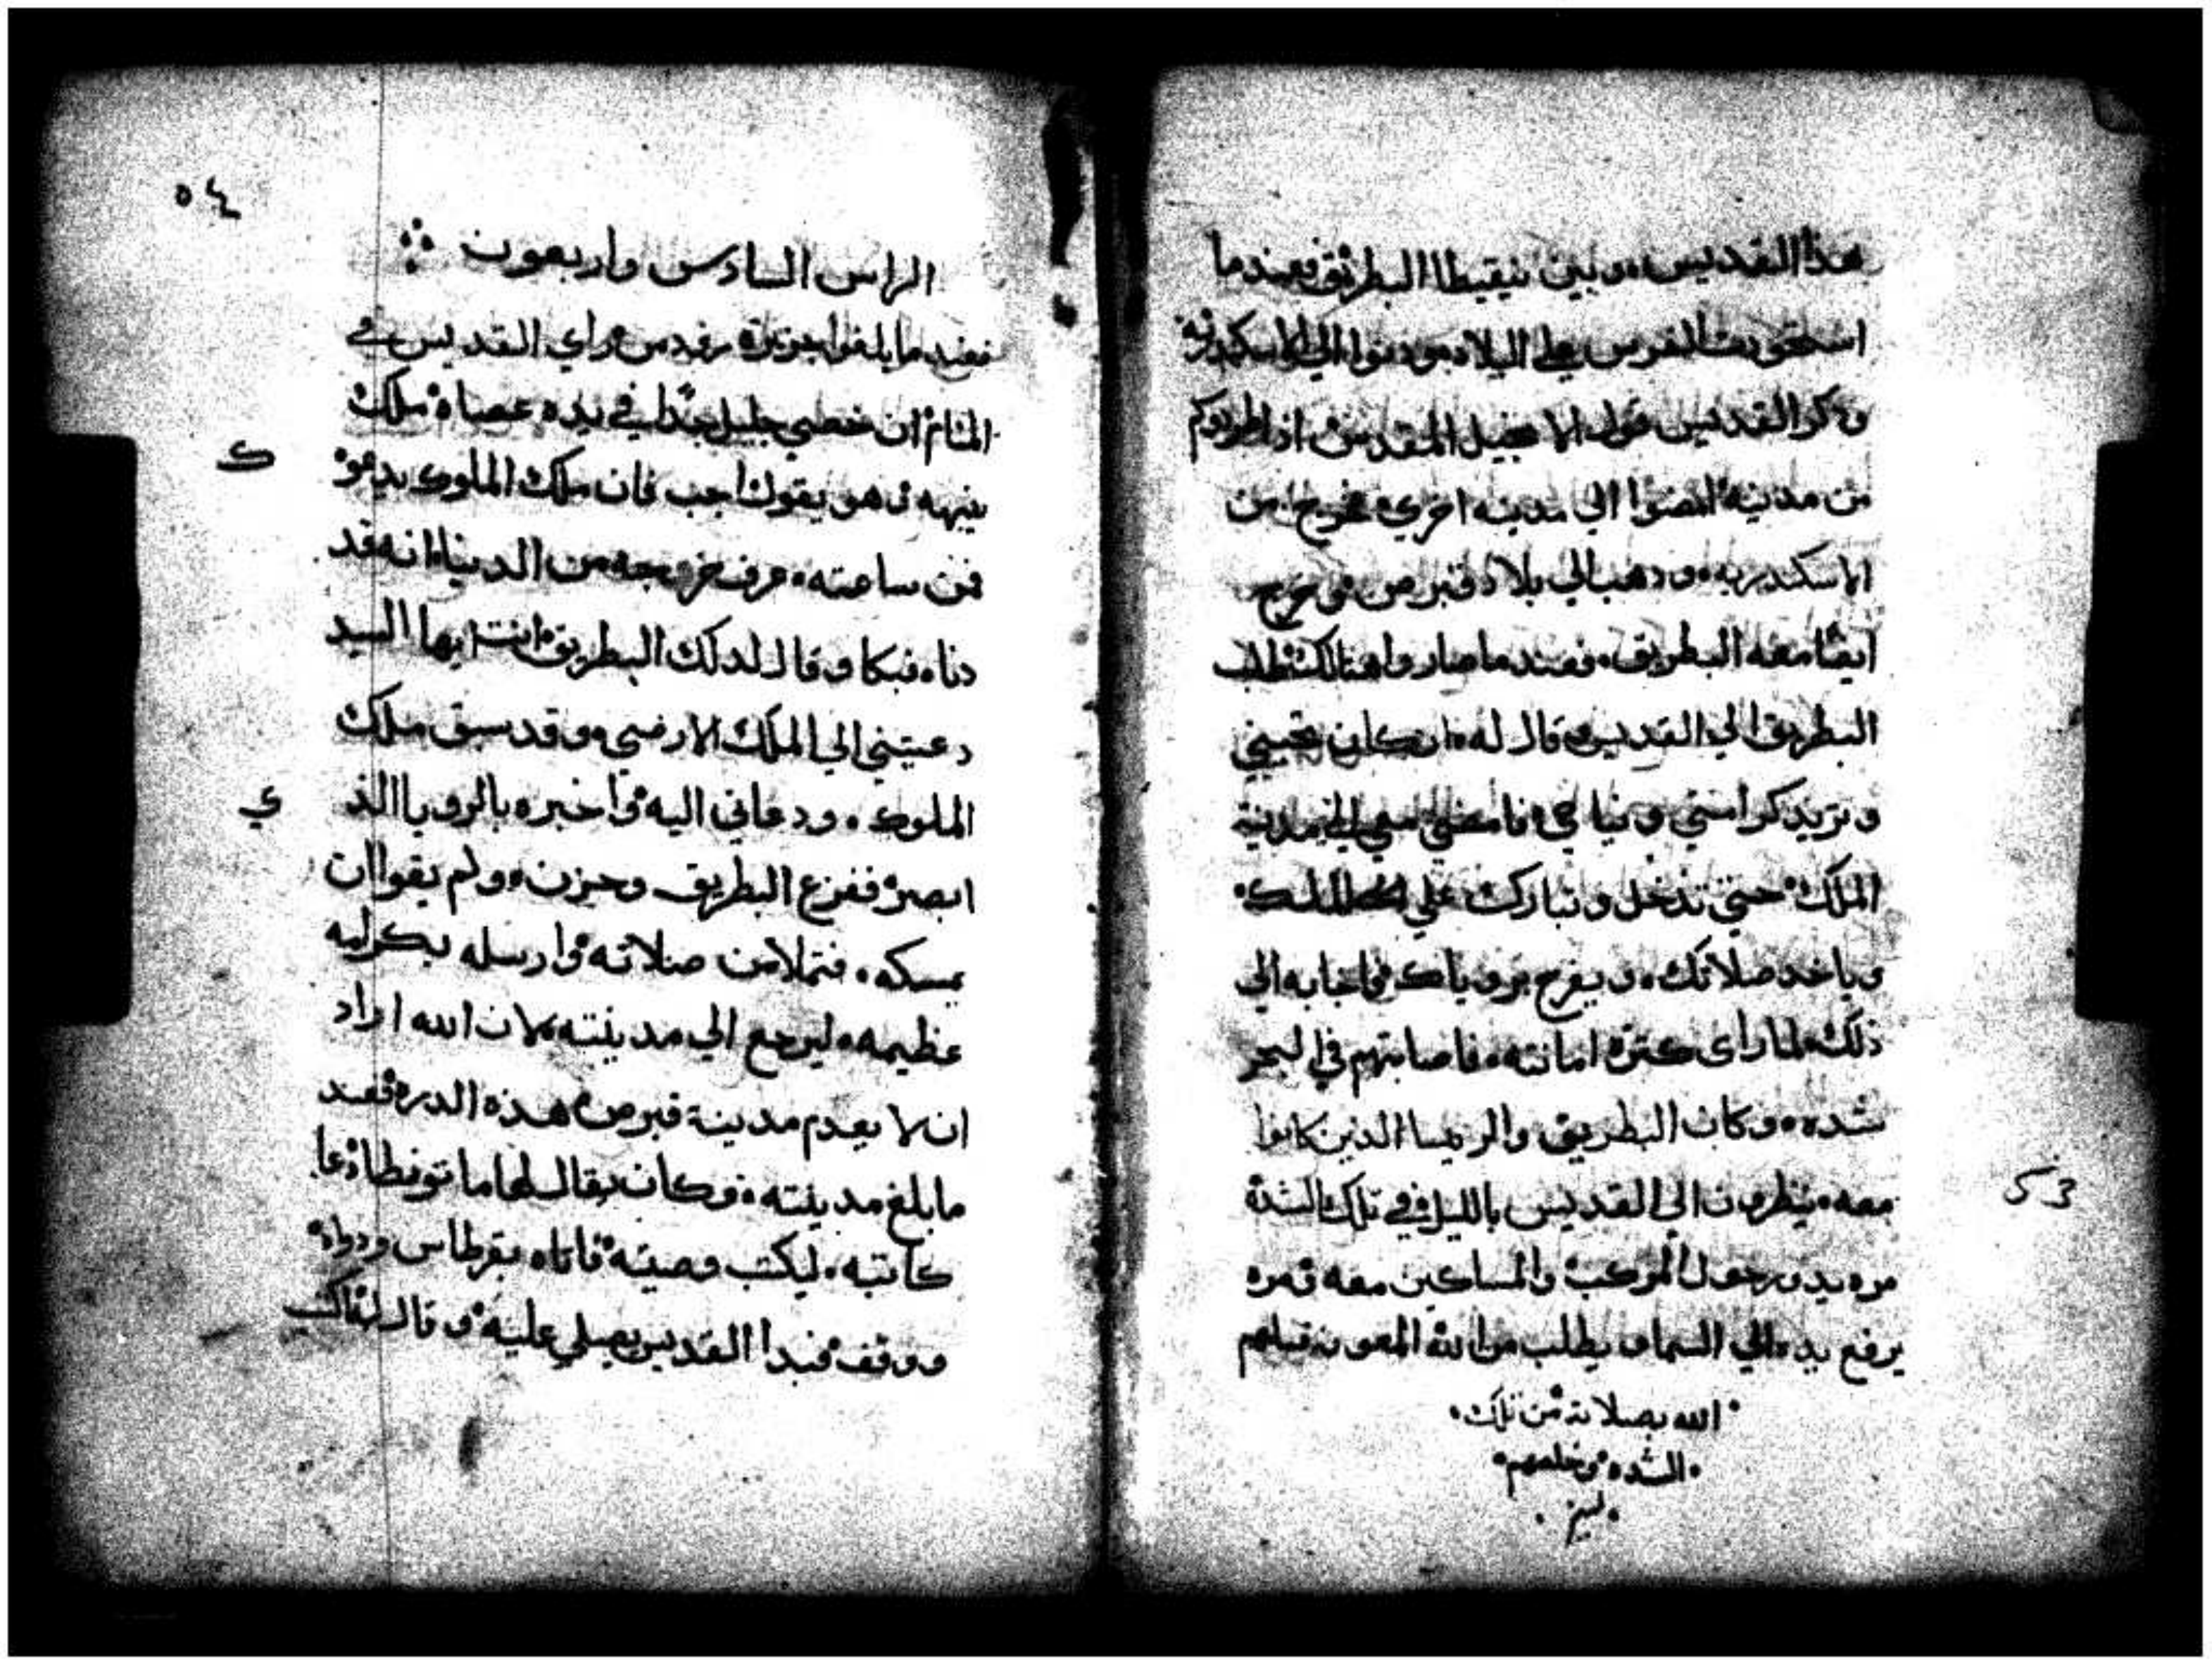 هذا القديس وبين نيقيطا البطريق فعند ما
استحوت الفرس علي البلاد ودنوا الي الاسكندريه
وذكر القديس قول الانجيل المقدس اذا طردوكم
من مدينه امضوا الي مدينه اخري فخرج من
الاسكندريه وذهب الي بلاد قبرص وخرج
ايضًا معه البطريق فعند ما صاروا هنالك طلب
البطريق الي القديس وقال له ان كان تحبني
وتريد كرامتي ونياحي فامضي معي الي مدينة
الملك حتي تدخل وتبارك علي الملك
وياخد صلاتك ويفرح بروياك فاجابه الي
ذلك لما راى كترة امانته فاصابتهم في البحر
شده وكان البطريق والريسا الذين كانوا
معه ينظرون الي القديس بالليل في تلك الشدة
مره يدور حول المركب والمساكين معه ومره
يرفع يده الي السما ويطلب من الله المعونه قبلهم
الله بصلاته من تلك
الشده وخلصهم
53
٥٤
الراس السادس واربعون
فعند ما بلغوا جزيرة رودس راي القديس في
المنام ان خصي جليل جدًا في يده عصاه ملك
ينبهه وهو يقول اجب فان ملك الملوك يدعوك
فمن ساعته عرف خروجه من الدنيا انه قد
دنا فبكا وقال لدلك البطريق انت ايها السيد
دعيتني الي الملك الارضي وقد سبق ملك
الملوك ودعاني اليه واخبره بالرويا الذي
ابصر ففزع البطريق وحزن ولم يقوا ان
يمسكه فتملا من صلاته وارسله بكرامه
عظيمه ليرجع الي مدينته لان الله اراد
ان لا يعدم مدينة قبرص هذه الدره فعند
ما بلغ مدينته وكان يقال لها ماتونطا دعا
كاتبه ليكتب وصيته فاتاه بقرطاس ودواه
ووقف فبدا القديس يصلي عليه وقال له اكتب